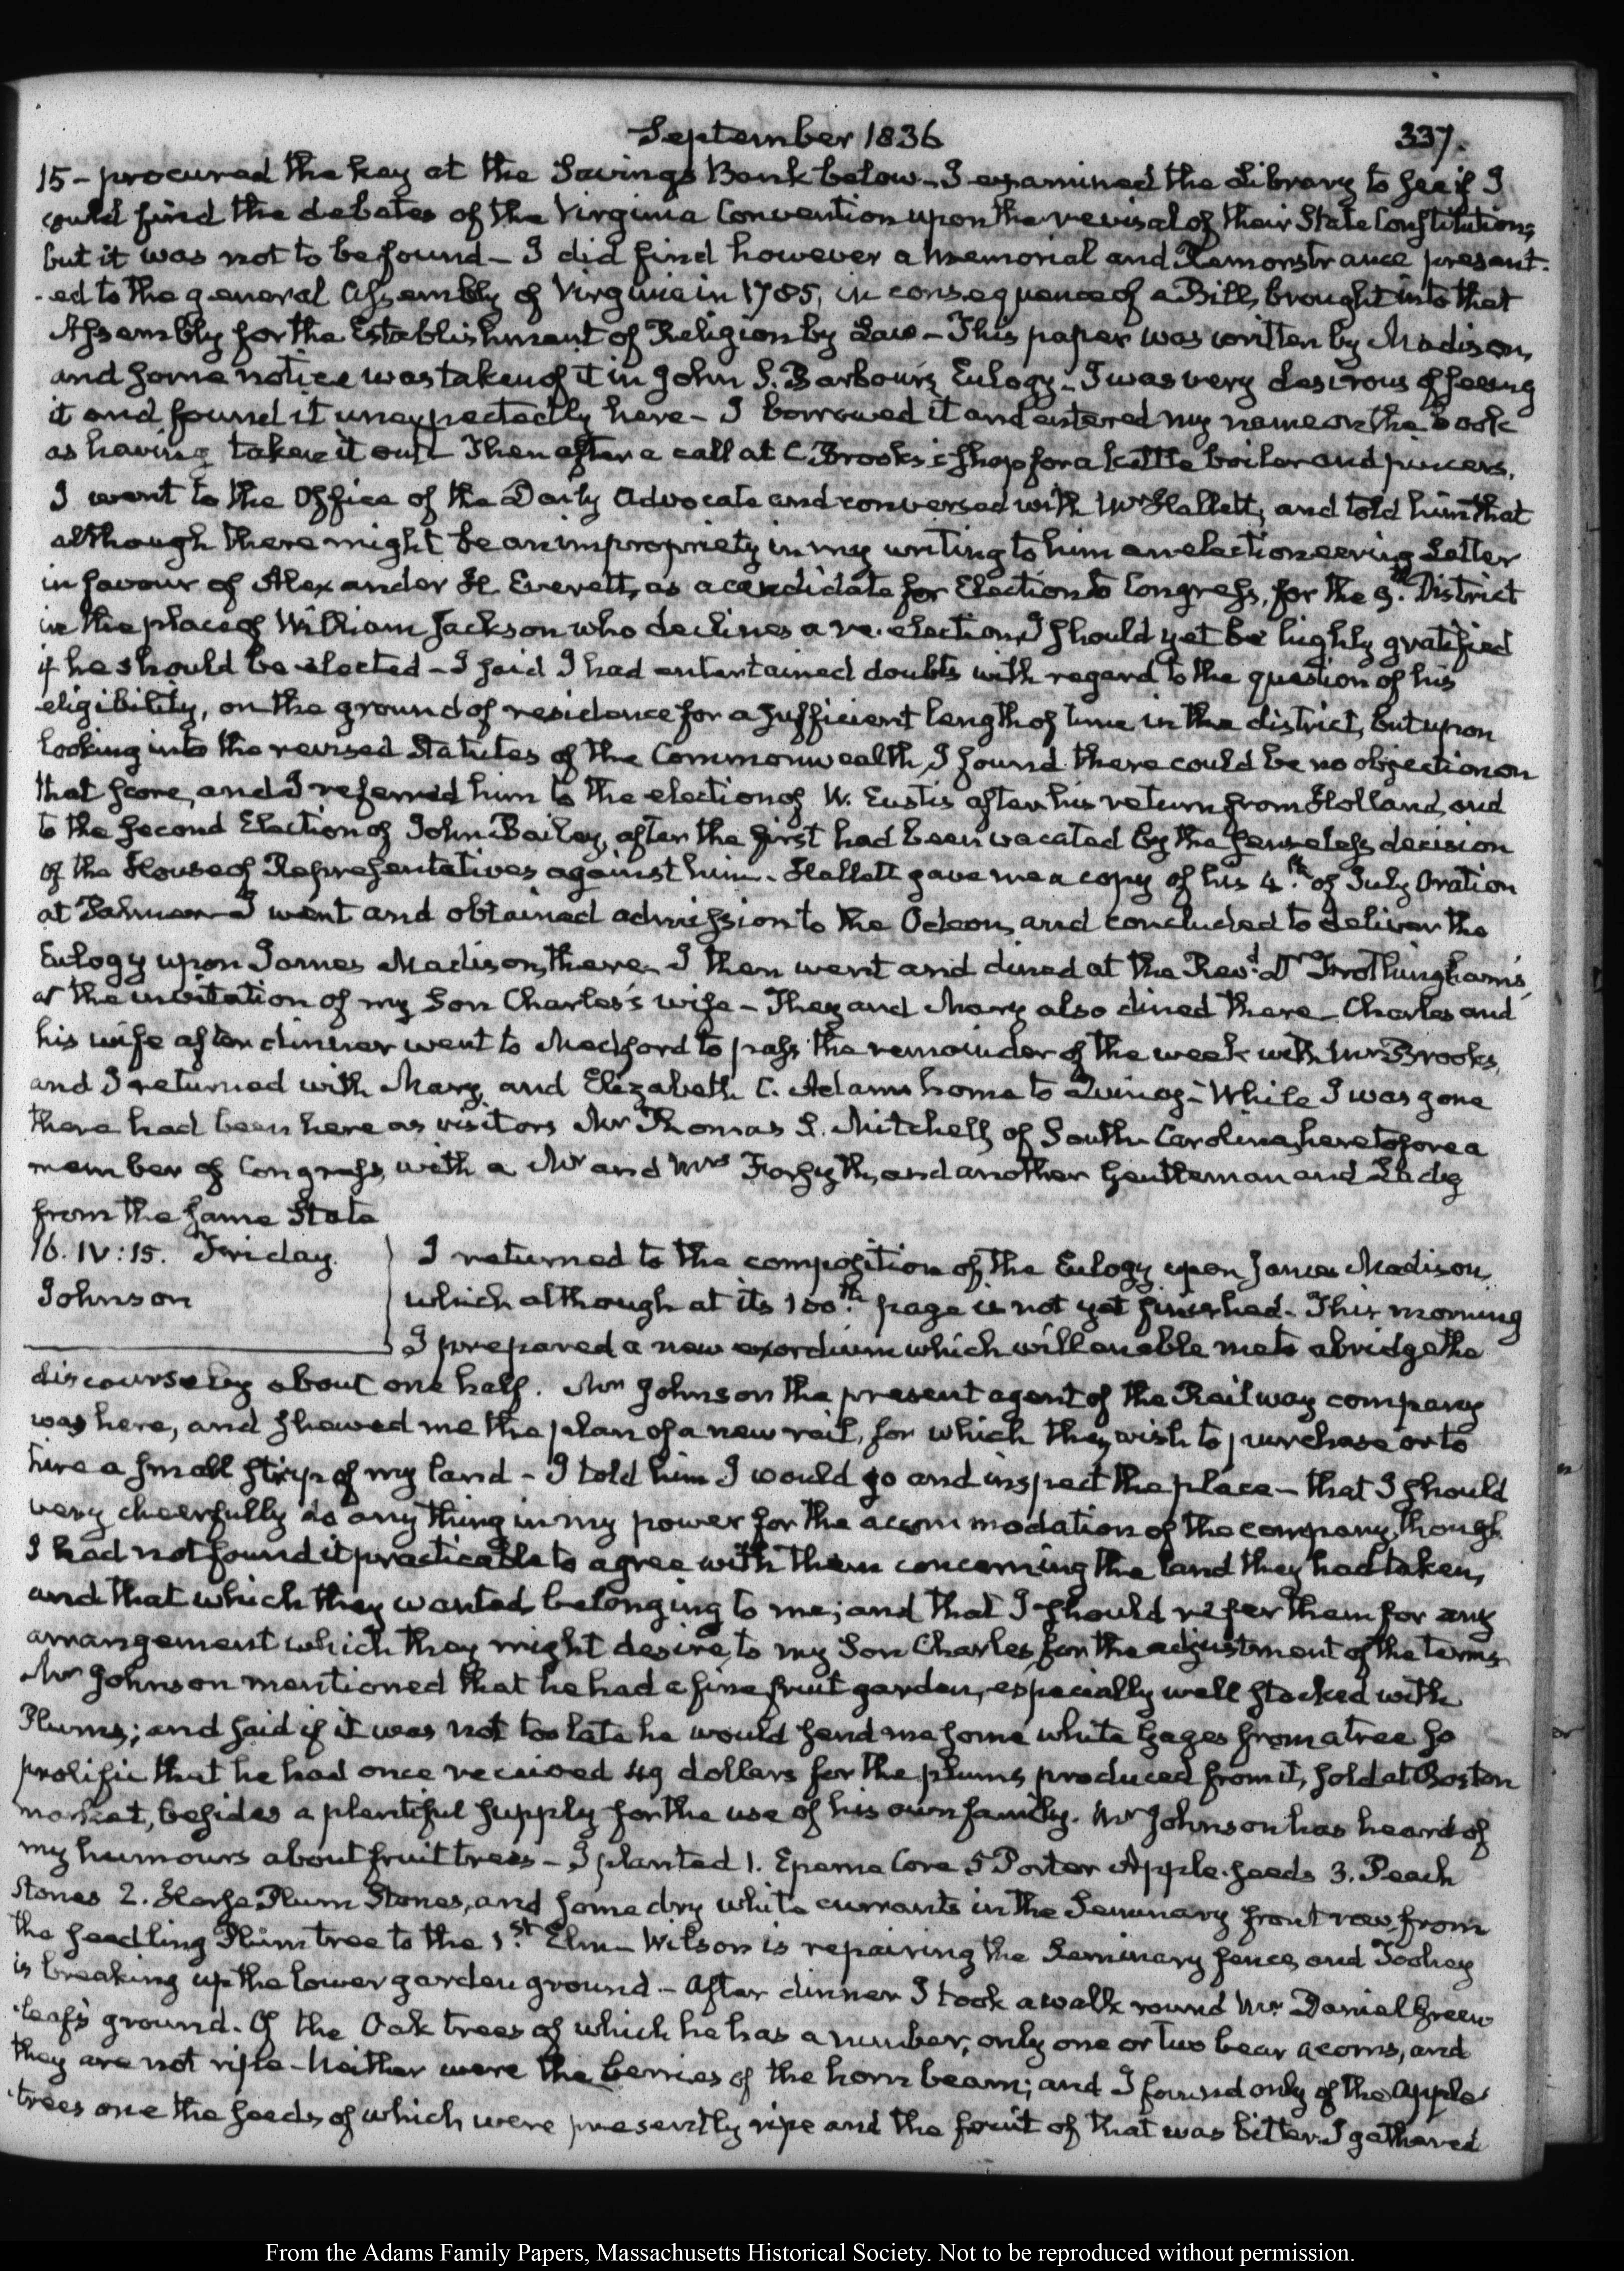 September 1836
337.
15 - procured the key at the Savings Bank below - I examined the Library to see if I
could find the debates of the Virginia Convention upon the revisal of their State Constitution,
but it was not to be found - I did find however a Memorial and Remonstrance present-
-ed to the general Assembly of Virginia in 1785, in consequence of a Bill, brought into that
Assembly for the Establishment of Religion by Law - This paper was written by Madison,
and some notice was taken of it in John S. Barbour's Eulogy - I was very desirous of seeing
it and found it unexpectedly here - I borrowed it and entered my name on the book
as having taken it out - Then after a call at C. Brooks's shop for a kettle boiler and pincers,
I went to the Office of the Daily Advocate and conversed with Mr Hallett, and told him that
although there might be an impropriety in my writing to him an electioneering Letter
in favour of Alexander H. Everett, as a candidate for Election to Congress, for the 9th District
in the place of William Jackson who declines a re-election, I should yet be highly gratified
if he should be elected - I said I had entertained doubts with regard to the question of his
eligibility, on the ground of residence for a sufficient length of time in the district, but upon
looking into the revised Statutes of the Commonwealth, I found there could be no objection on
that score, and I referred him to the election of W. Eustis after his return from Holland, and
to the second Election of John Bailey, after the first had been vacated by the senseless decision
of the House of Representatives against him. Hallett gave me a copy of his 4th of July Oration
at Palmer - I went and obtained admission to the Odeon, and concluded to deliver the
Eulogy upon James Madison, there. I then went and dined at the Revd Dr Frothingham's,
at the invitation of my Son Charles's wife - They and Mary also dined there - Charles and
his wife after dinner went to Medford to pass the remainder of the week with Mr Brooks,
and I returned with Mary, and Elizabeth C. Adams home to Quincy - While I was gone
there had been here as visitors Mr Thomas S. Mitchell, of South Carolina, heretofore a
member of Congress, with a Mr and Mrs Forsyth, and another Gentleman and Lady
from the same State
16. IV:15. Friday.
Johnson
I returned to the composition of the Eulogy upon James Madison,
which although at its 100th page is not yet finished - This morning
I prepared a new exordium which will enable me to abridge the
discourse by about one half. Mr Johnson the present agent of the Railway company
was here, and shewed me the plan of a new rail, for which they wish to purchase or to
hire a small strip of my land - I told him I would go and inspect the place - that I should
very cheerfully do any thing in my power for the accommodation of the company, though
I had not found it practicable to agree with them concerning the land they had taken,
and that which they wanted, belonging to me; and that I should refer them for any
arrangement which they might desire, to my Son Charles, for the adjustment of the terms
Mr Johnson mentioned that he had a fine fruit garden, especially well stocked with
Plums; and said if it was not too late he would send me some white gages from a tree so
prolific that he had once received 49 dollars for the plums, produced from it, sold at Boston
market, besides a plentiful supply for the use of his own family. Mr Johnson has heard of
my humours about fruit trees - I planted 1. Core 5 Porter Apple seeds 3. Peach
Stones 2. Horse Plum Stones, and some dry white currants in the Seminary front row from
the seedling Plum tree to the 1st Elm - Wilson is repairing the Seminary fence, and Toohey
is breaking up the lower garden ground - After dinner I took a walk round Mr Daniel Green-
-leaf's ground. Of the Oak trees of which he has a number, only one or two bear acorns, and
they are not ripe - Neither were the berries of the horn beam; and I found only of the apple
-trees one the seeds of which were presently ripe and the fruit of that was bitter. I gathered
From the Adams Family Papers, Massachusetts Historical Society. Not to be reproduced without permission.